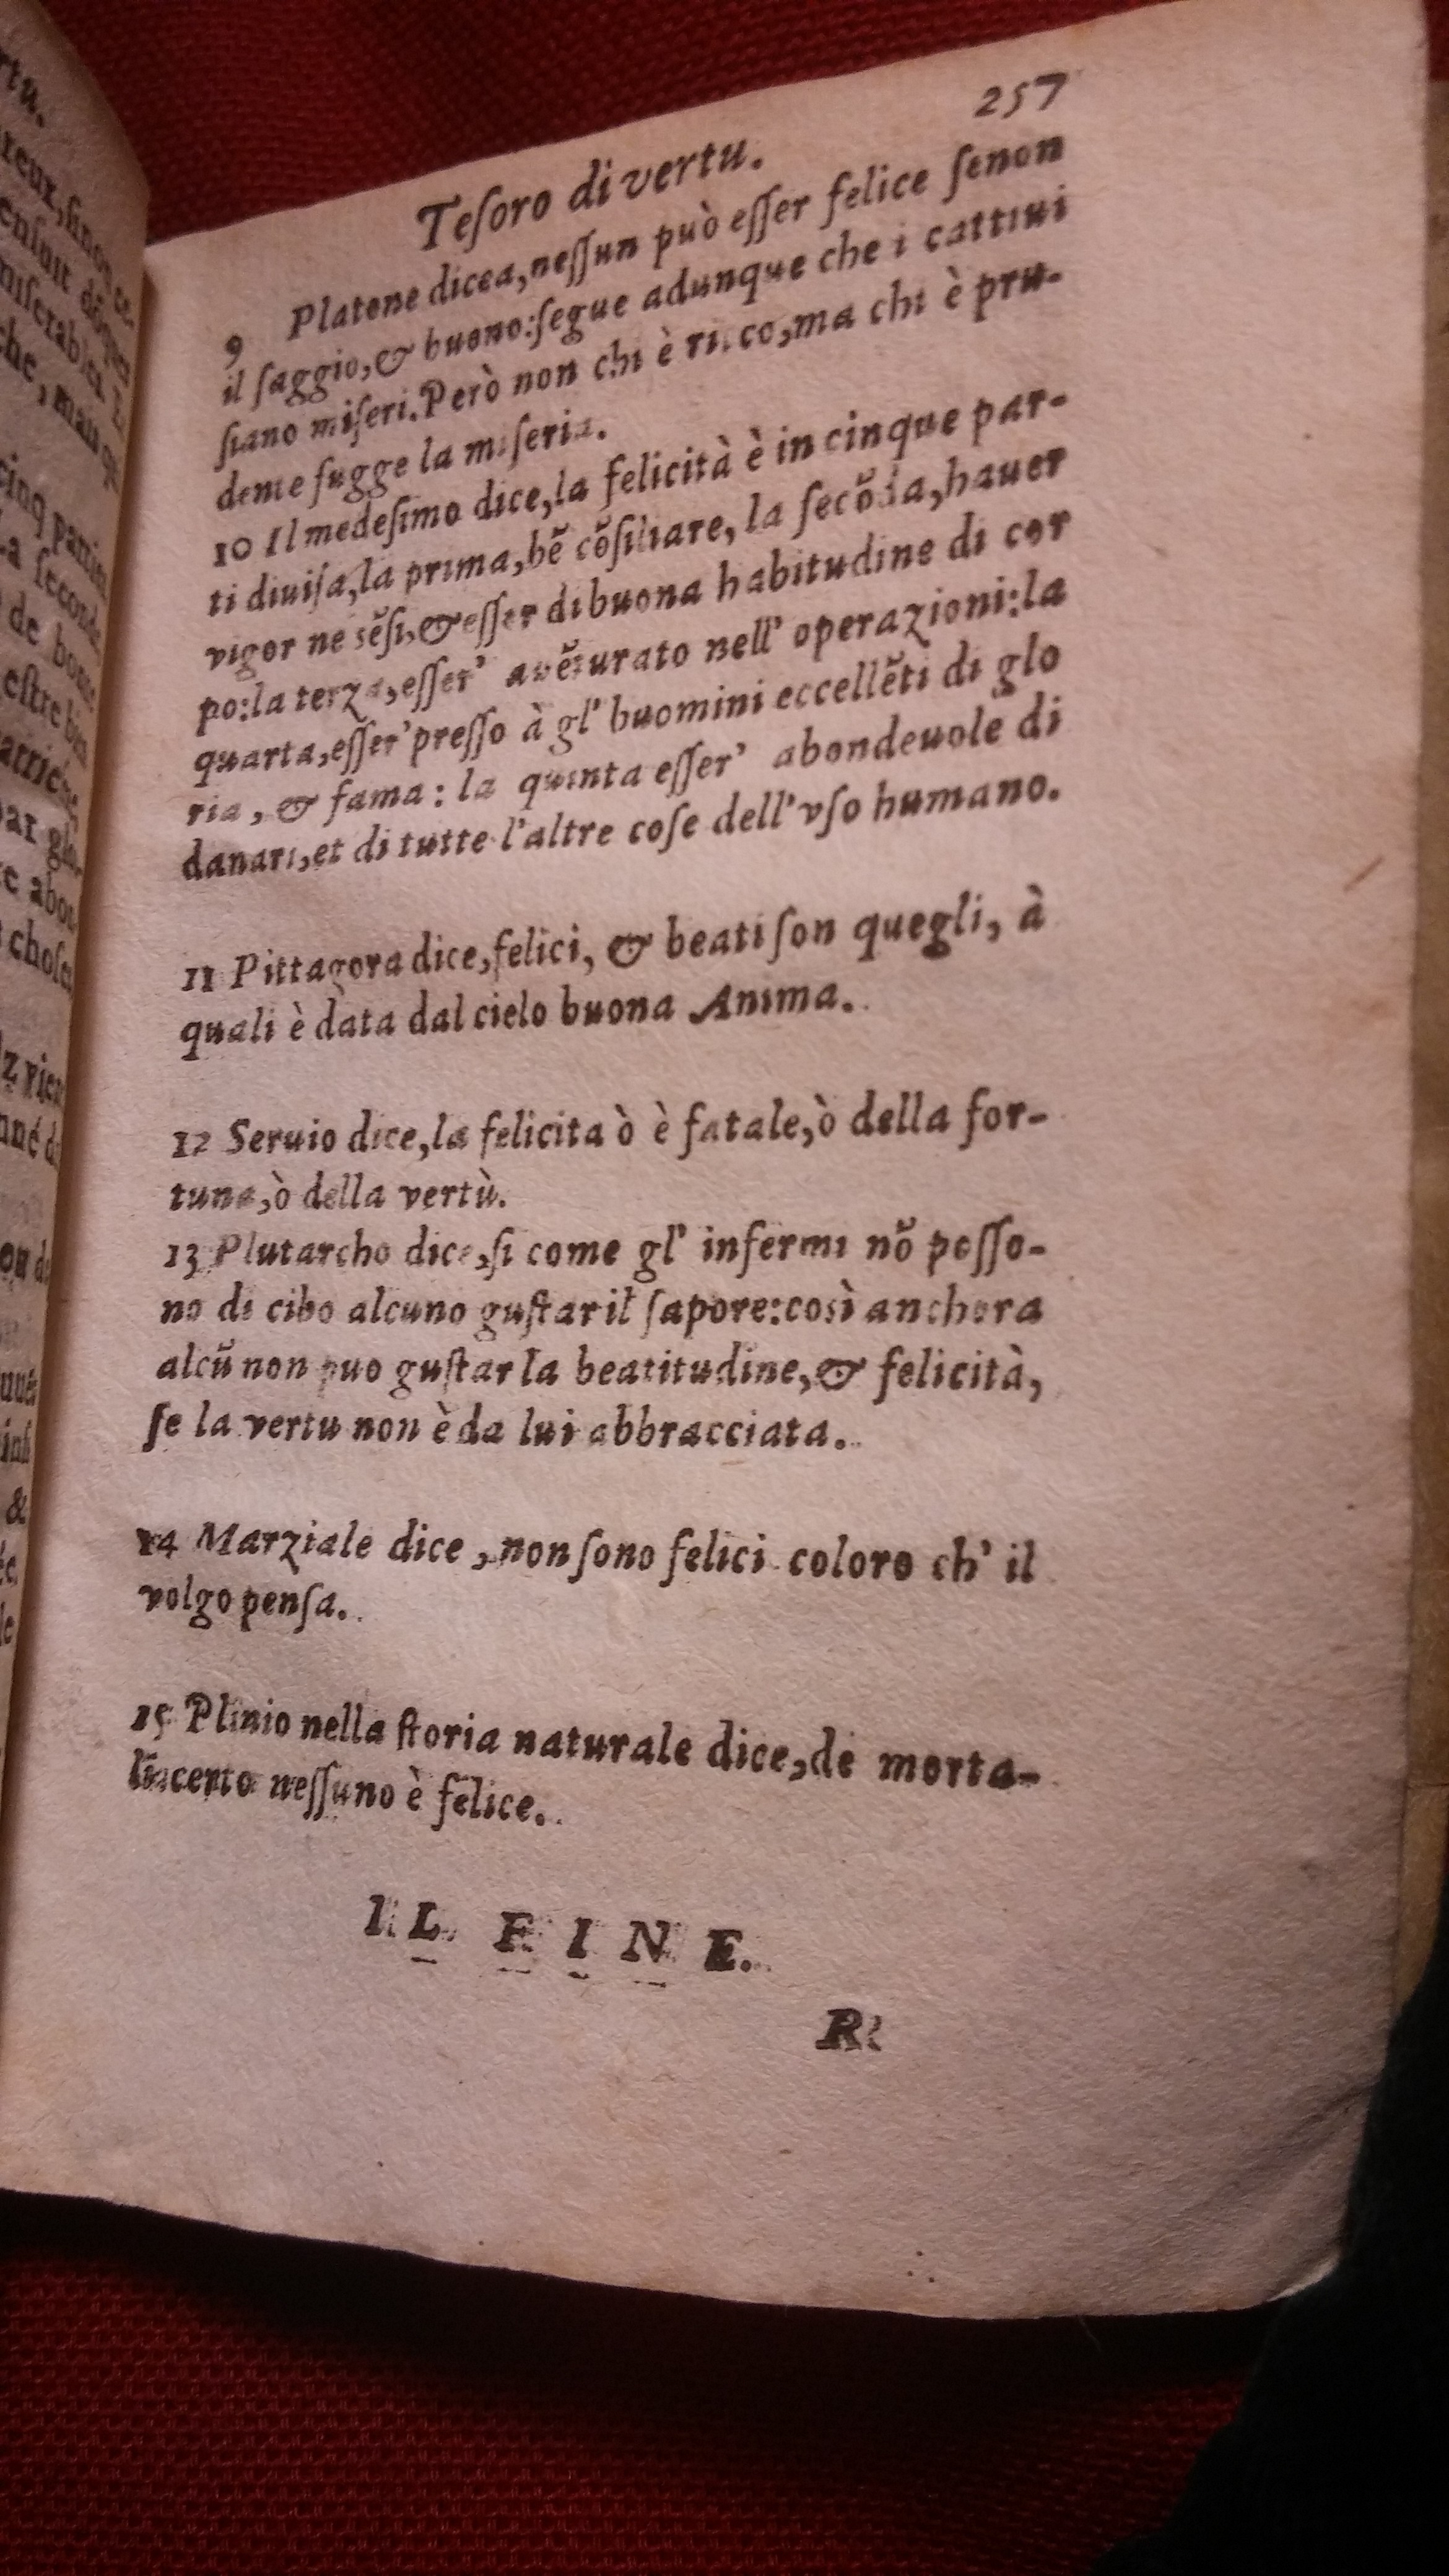 rtu.
257
Teſoro di vertu.
9 Platone dicea, neſſun può eſſer felice ſenon
il ſaggio, & buono: ſegue adunque che i cattiui
ſiano miſeri. Però non chi è ricco, ma chi è pru-
dente fugge la miſeria.
10 Il medeſimo dice, la felicità è in cinque par-
ti diuiſa, la prima, bẽ cõſiliare, la ſecõda, hauer
vigor ne sẽſi, & eſſer di buona habitudine di cor
po: la terza, eſſer' avẽturato nell' operazioni: la
quarta, eſſer' preſſo à gl' huomini eccellẽti di glo
ria, & fama: la quinta eſſer' abondeuole di
danari, et di tutte l'altre coſe dell'vſo humano.
11 Pittagora dice, felici, & beati ſon quegli, à
quali è data dal cielo buona Anima.
12 Seruio dice, la felicita ò è fatale, ò della for-
tuna, ò della vertù.
13 Plutarcho dice, ſi come gl' infermi nõ poſſo-
no di cibo alcuno guſtar il ſapore: così anchora
alcũ non puo guſtar la beatitudine, & felicità,
ſe la vertu non è da lui abbracciata.
14 Marziale dice, non ſono felici coloro ch' il
volgo penſa.
15 Plinio nella ſtoria naturale dice, de morta-
li certo neſſuno è felice.
IL FINE.
R